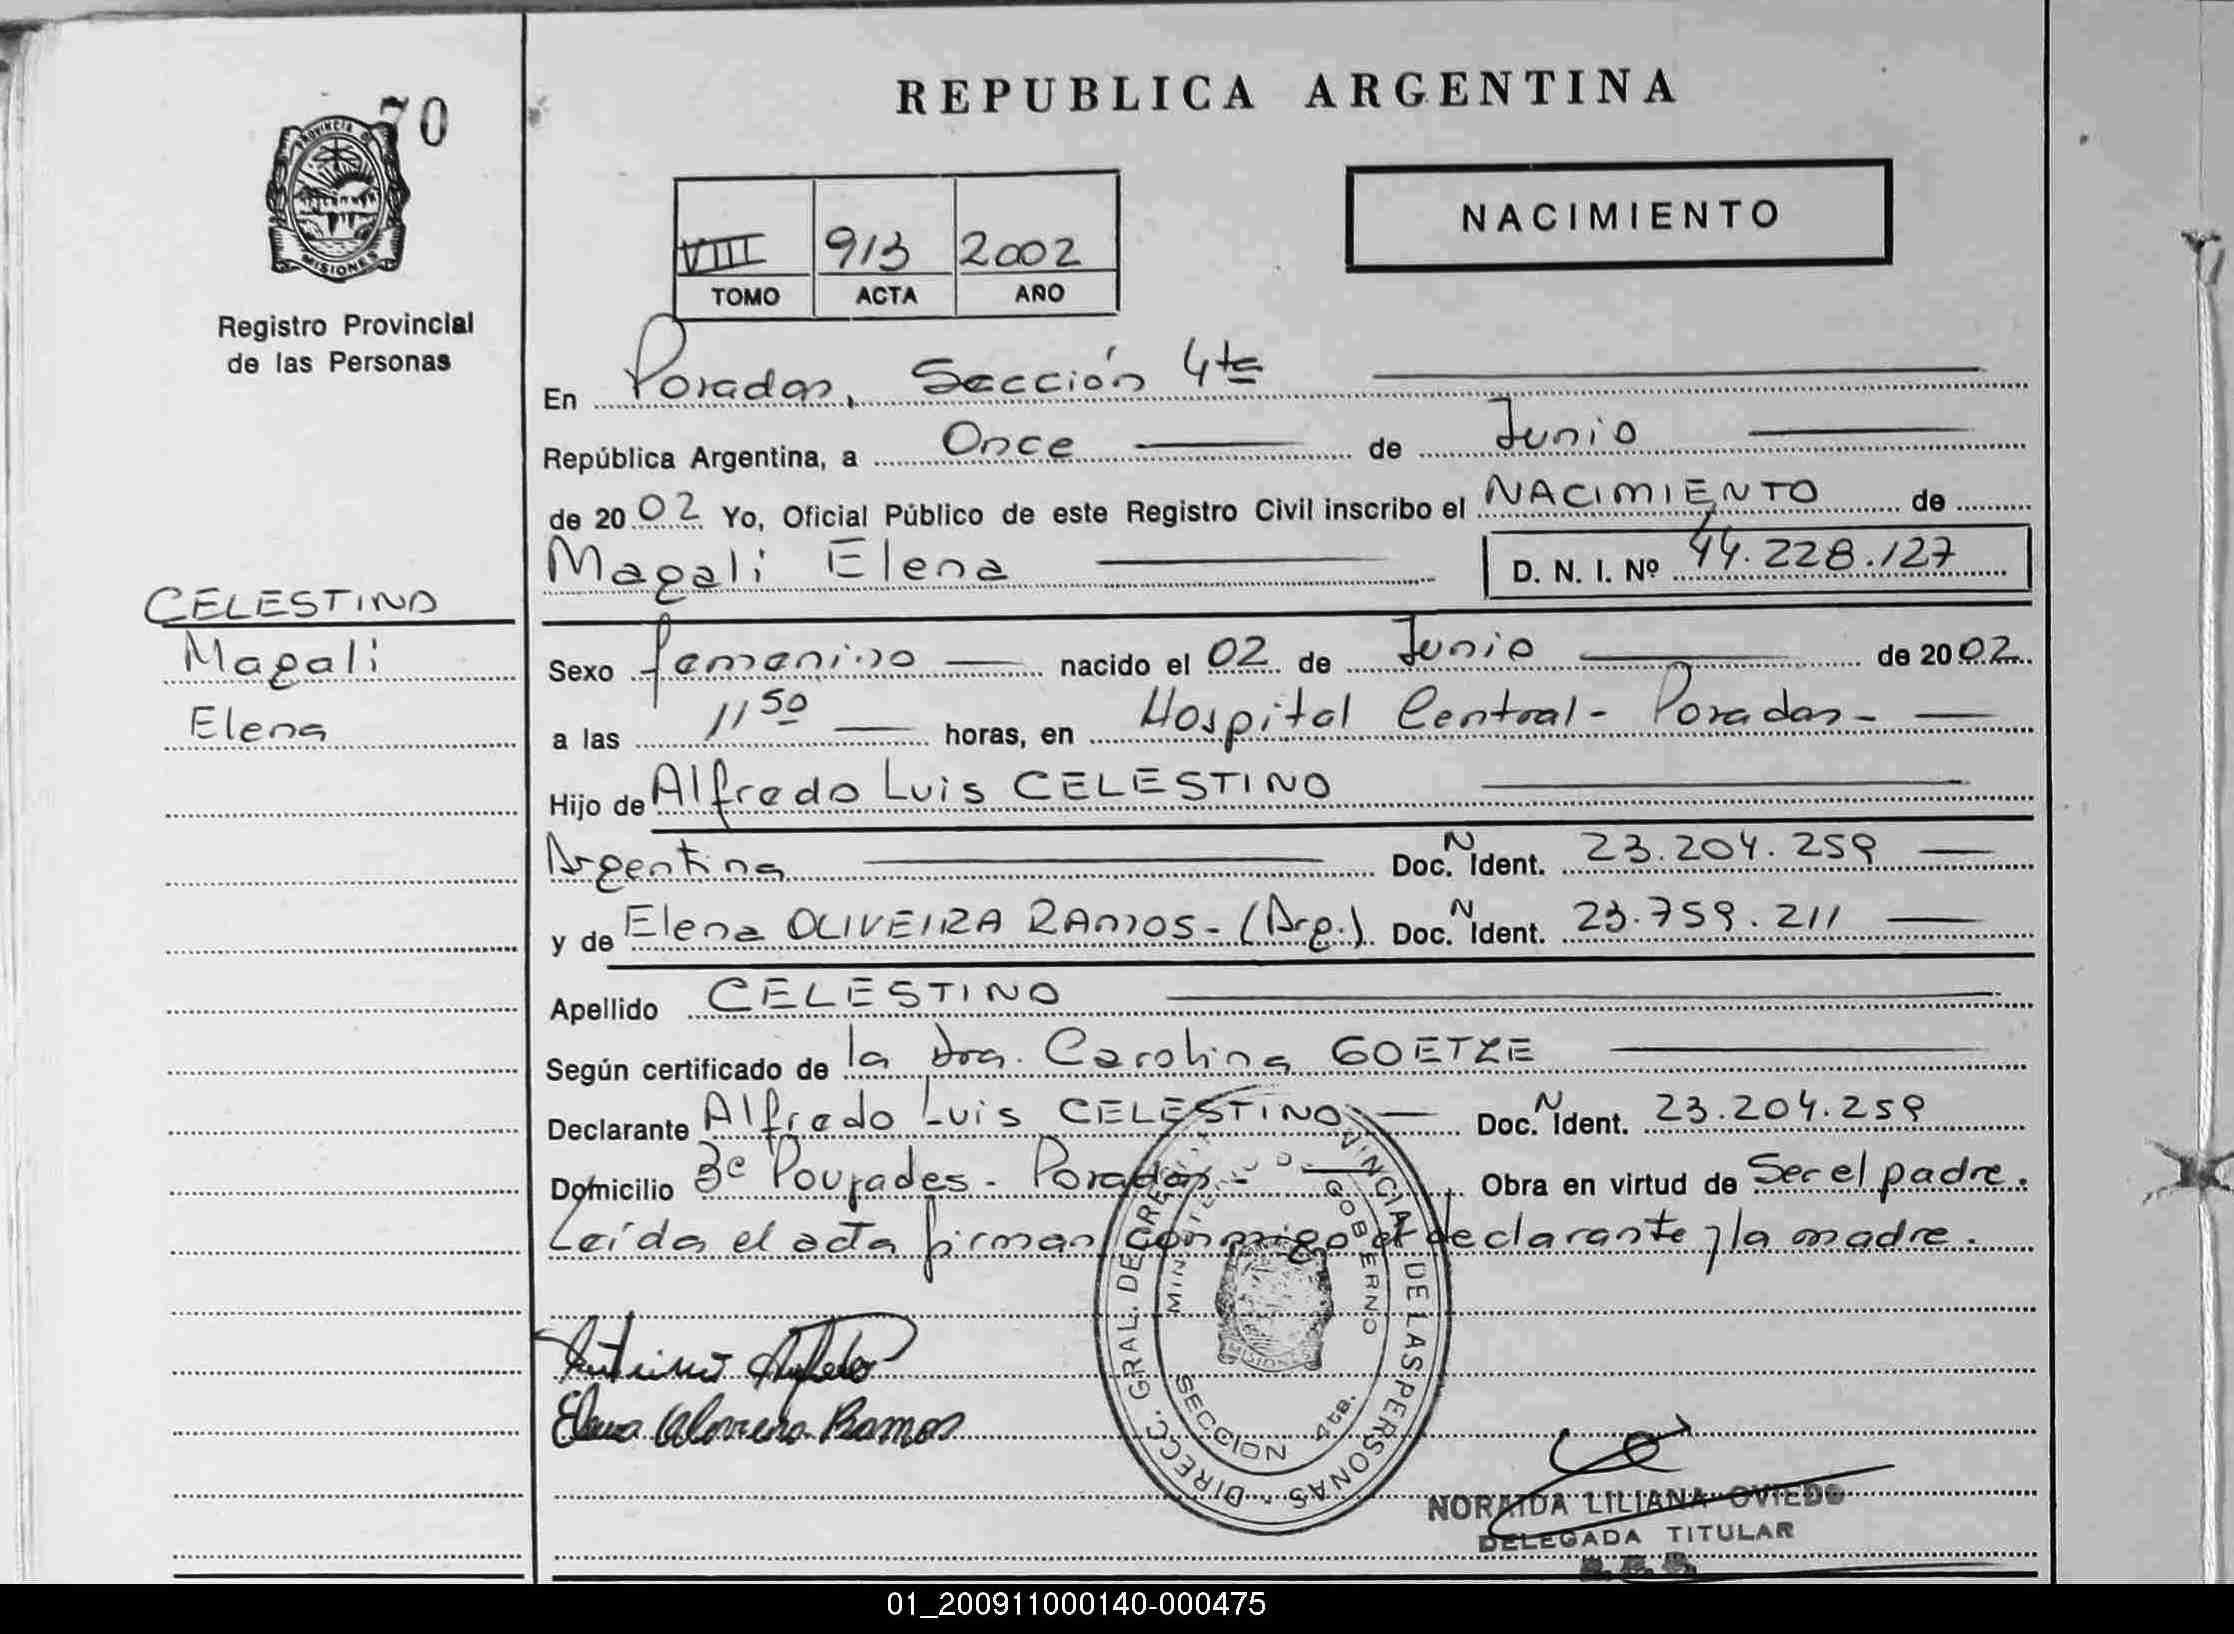 70
PROVINCIA DE
MISIONES
Registro Provincial
de las Personas
CELESTINO
Magali
Elena
REPUBLICA ARGENTINA
NACIMIENTO
VIII 913 2002
TOMO ACTA AÑO
En Posadas, Sección 4ta
República Argentina, a Once de Junio
de 2002 Yo, Oficial Público de este Registro Civil inscribo el NACIMIENTO de
Magali Elena D. N. I. Nº 44.228.127
Sexo femenino nacido el 02 de Junio de 2002
a las 11 50 horas, en Hospital Central - Posadas -
Hijo de Alfredo Luis CELESTINO
Argentina Doc. N Ident. 23.204.259
y de Elena OLIVEIRA RAMOS - (Arg.) Doc. N Ident. 23.759.211
Apellido CELESTINO
Según certificado de la Dra. Carolina GOETZE
Declarante Alfredo Luis CELESTINO Doc. N Ident. 23.204.259
Domicilio Bº Poujades - Posadas - Obra en virtud de Ser el padre.
Leída el acta firman conmigo el declarante y la madre.
DIRECC. GRAL. DE REG. PROVINCIAL DE LAS PERSONAS
MINISTERIO DE GOBIERNO
MISIONES
SECCION 4ta.
Elena Ramos
NORAIDA LILIANA OVIEDO
DELEGADA TITULAR
01_200911000140-000475